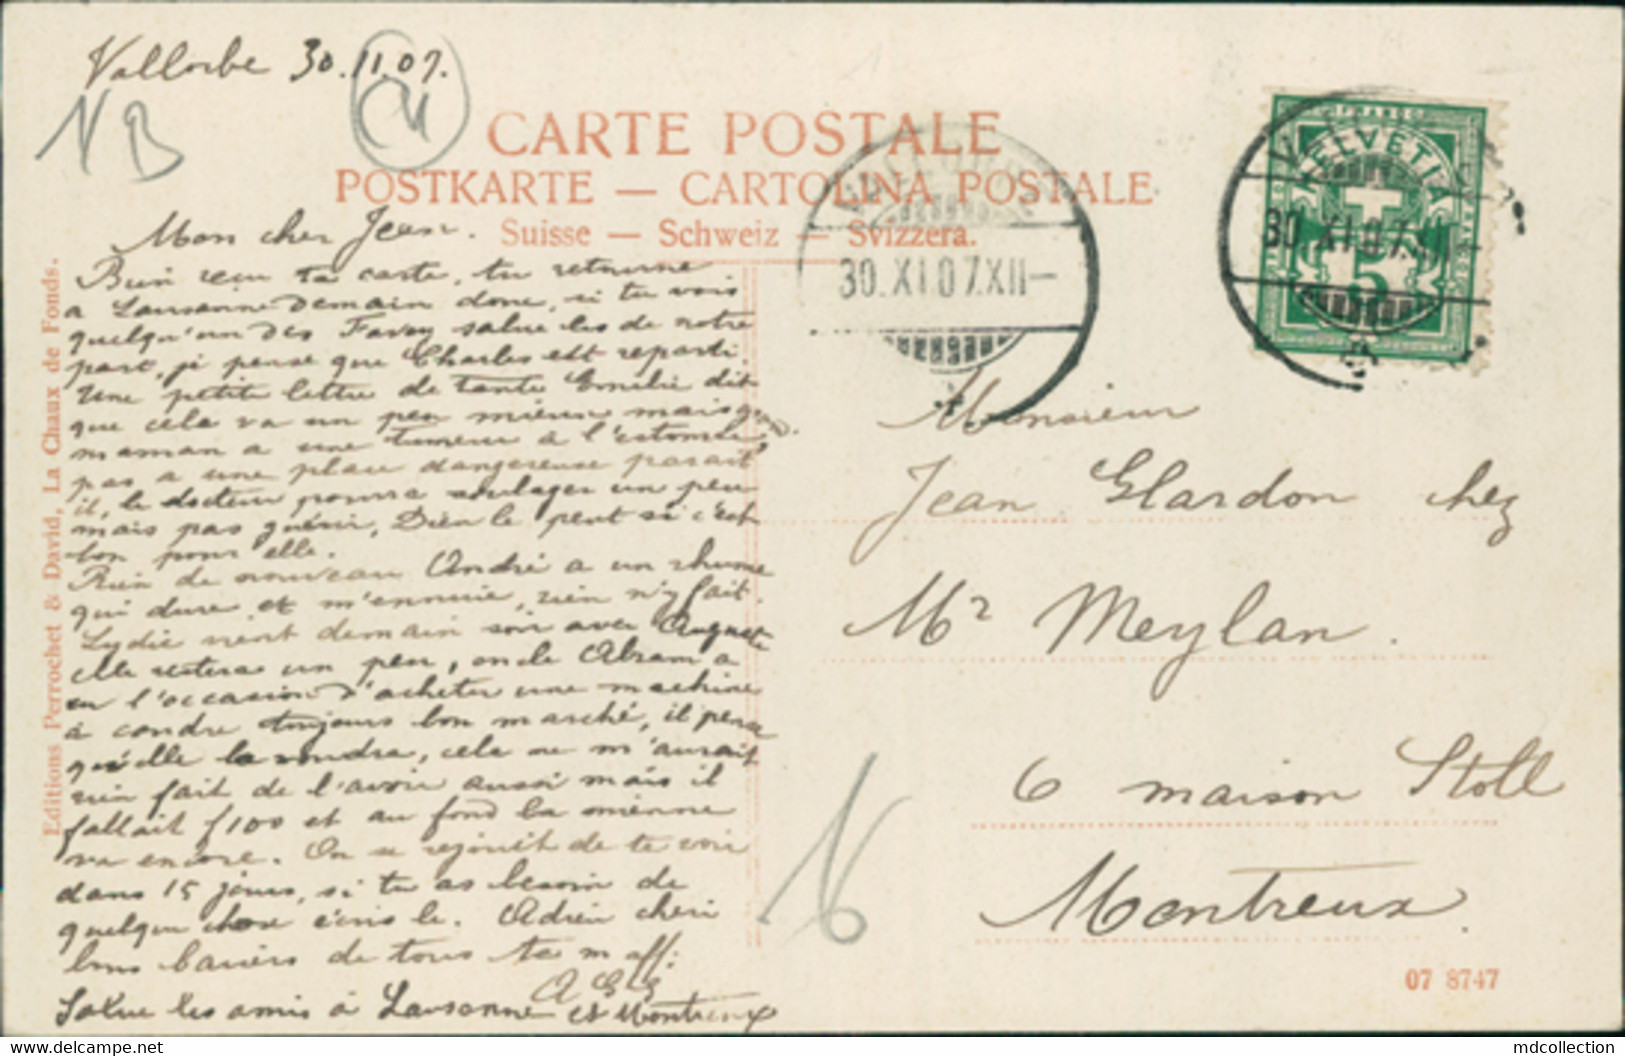 Vallorbe 30.11.07.
N B
CARTE POSTALE
POSTKARTE — CARTOLINA POSTALE
Suisse — Schweiz — Svizzera.
Mon cher Jean.
Bien reçu ta carte, tu retourne
a Lausanne Demain donc, si tu vois
quelqu'un des Favey salue les de notre
part, je pense que Charles est reparti.
Une petite lettre de tante Emélie dit
que cela va un peu mieux mais q.
maman a une tumeur à l'estomac,
pas a une place dangereuse parait
il, le docteur pourra soulager un peu
mais pas guérir, Dieu le peut si c'est
bon pour elle.
Rien de nouveau André a un rhume
qui dure et m'ennuie, rien n'y fait.
Lydie vient demain soir avec Auguste
elle restera un peu, oncle Abram a
eu l'occasion d'acheter une machine
à coudre toujours bon marché, il pense
qu'elle la vendra, cela ne m'aurait
rien fait de l'avoir aussi mais il
fallait f 100 et au fond la mienne
va encore. On se rejouit de te voir
dans 15 jours, si tu as besoin de
quelque chose écris le. Adieu cheri
bons baisers de tous ta m aff:
Salue les amis à Lausanne et Montreux
Editions Perrochet & David, La Chaux de Fonds.
30.XI.07.XII—
FRANCO
HELVETIA
5
30.XI.07.
Monsieur
Jean Glardon chez
Mr Meylan.
6 maison Stoll
Montreux.
07 8747
delcampe.net
mdcollection